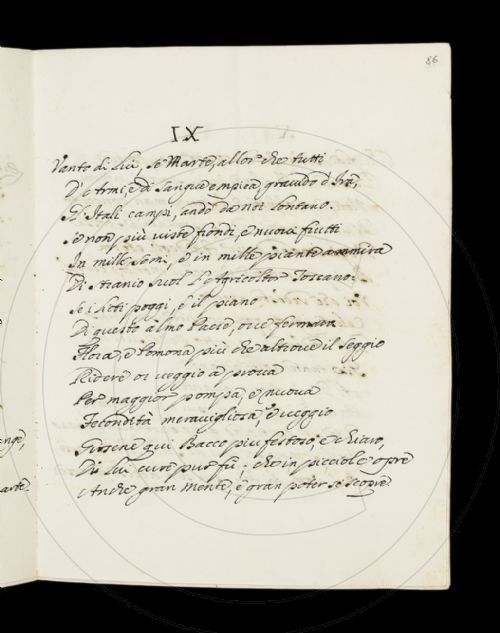 86
IX
Vanto di Lui, se Marte, allor che tutti
D'Armi, e di Sangue empiea, gravido d'Ira,
Gl'Itali campi, andò da noi lontano.
Se non più viste frondi, e nuovi frutti
In mille semi, e in mille piante ammira
Di stranio suol L'Agricoltor Toscano:
Se i lieti poggi, e il piano
Di questo almo Paese, ove fermara
Flora, e Pomona più che altrove il seggio
Ridere or veggio a prova
Per maggior pompa, e nuova
Fecondità meravigliosa, e veggio
Girsene qui Bacco più festoso, e chiaro,
Di Lui cure pur fu; che in picciole opre
Anche gran Mente, e gran poter si scopre.
enge,
arte